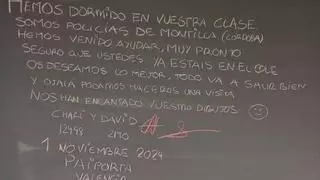 HEMOS DORMIDO EN VUESTRA CLASE.
SOMOS POLICÍAS DE MONTILLA (CÓRDOBA)
HEMOS VENIDO AYUDAR, MUY PRONTO
SEGURO QUE USTEDES YA ESTAIS EN EL COLE
OS DESEAMOS LO MEJOR, TODO VA A SALIR BIEN
Y OJALA PODAMOS HACEROS UNA VISITA
NOS HAN ENCANTADO VUESTRO DIBUJOS
CHARI Y DAVID
12448 2140
1 NOVIEMBRE 2024
PAIPORTA
VALENCIA